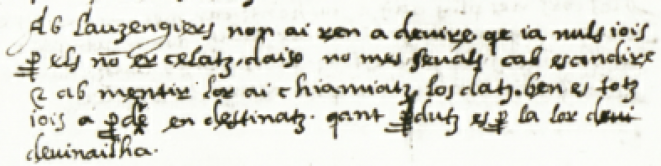 Ab lauzengiers non ai ren a deuire qe ia nuls iois
p̱ els nō er celatz. daiso no mes seuals cab escondire
& ab mentir lor ai chiamiatz los datz. ben es totz
iois a p̱dē en destinatz. qant p̱dutz es p̱ la lor deui
deuinailha.